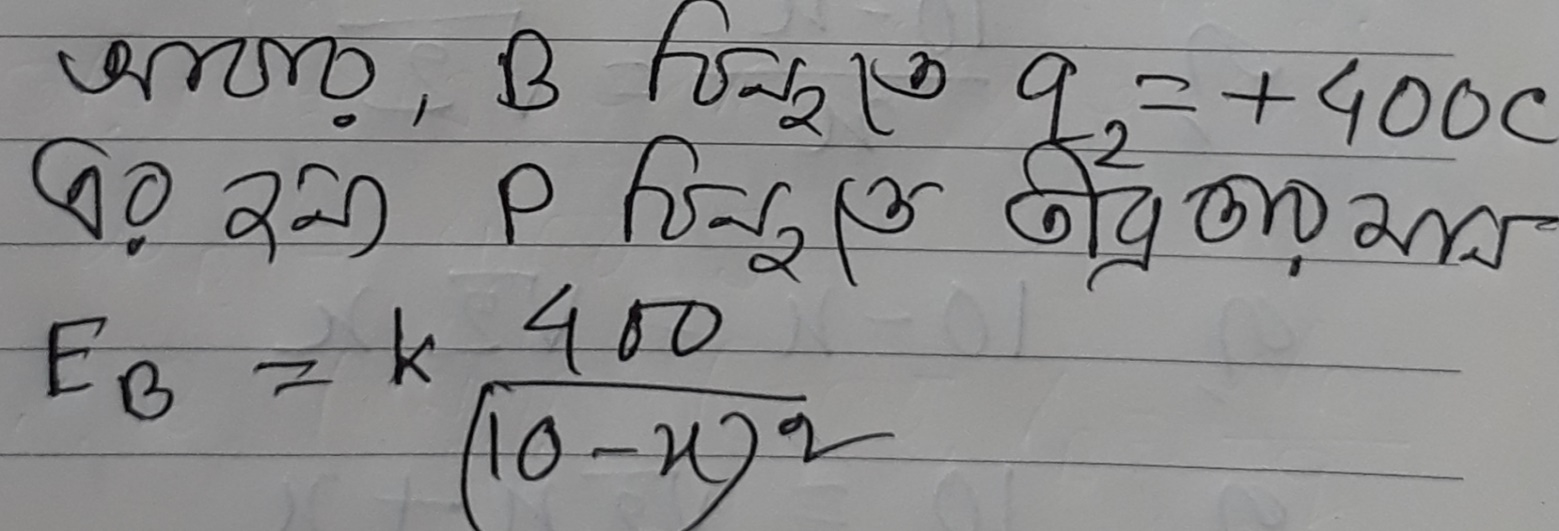 আবার, B বিন্দুতে q₂ = +400C
এর জন্য P বিন্দুতে তীব্রতার মান
E_B = k 400/(10-x)²